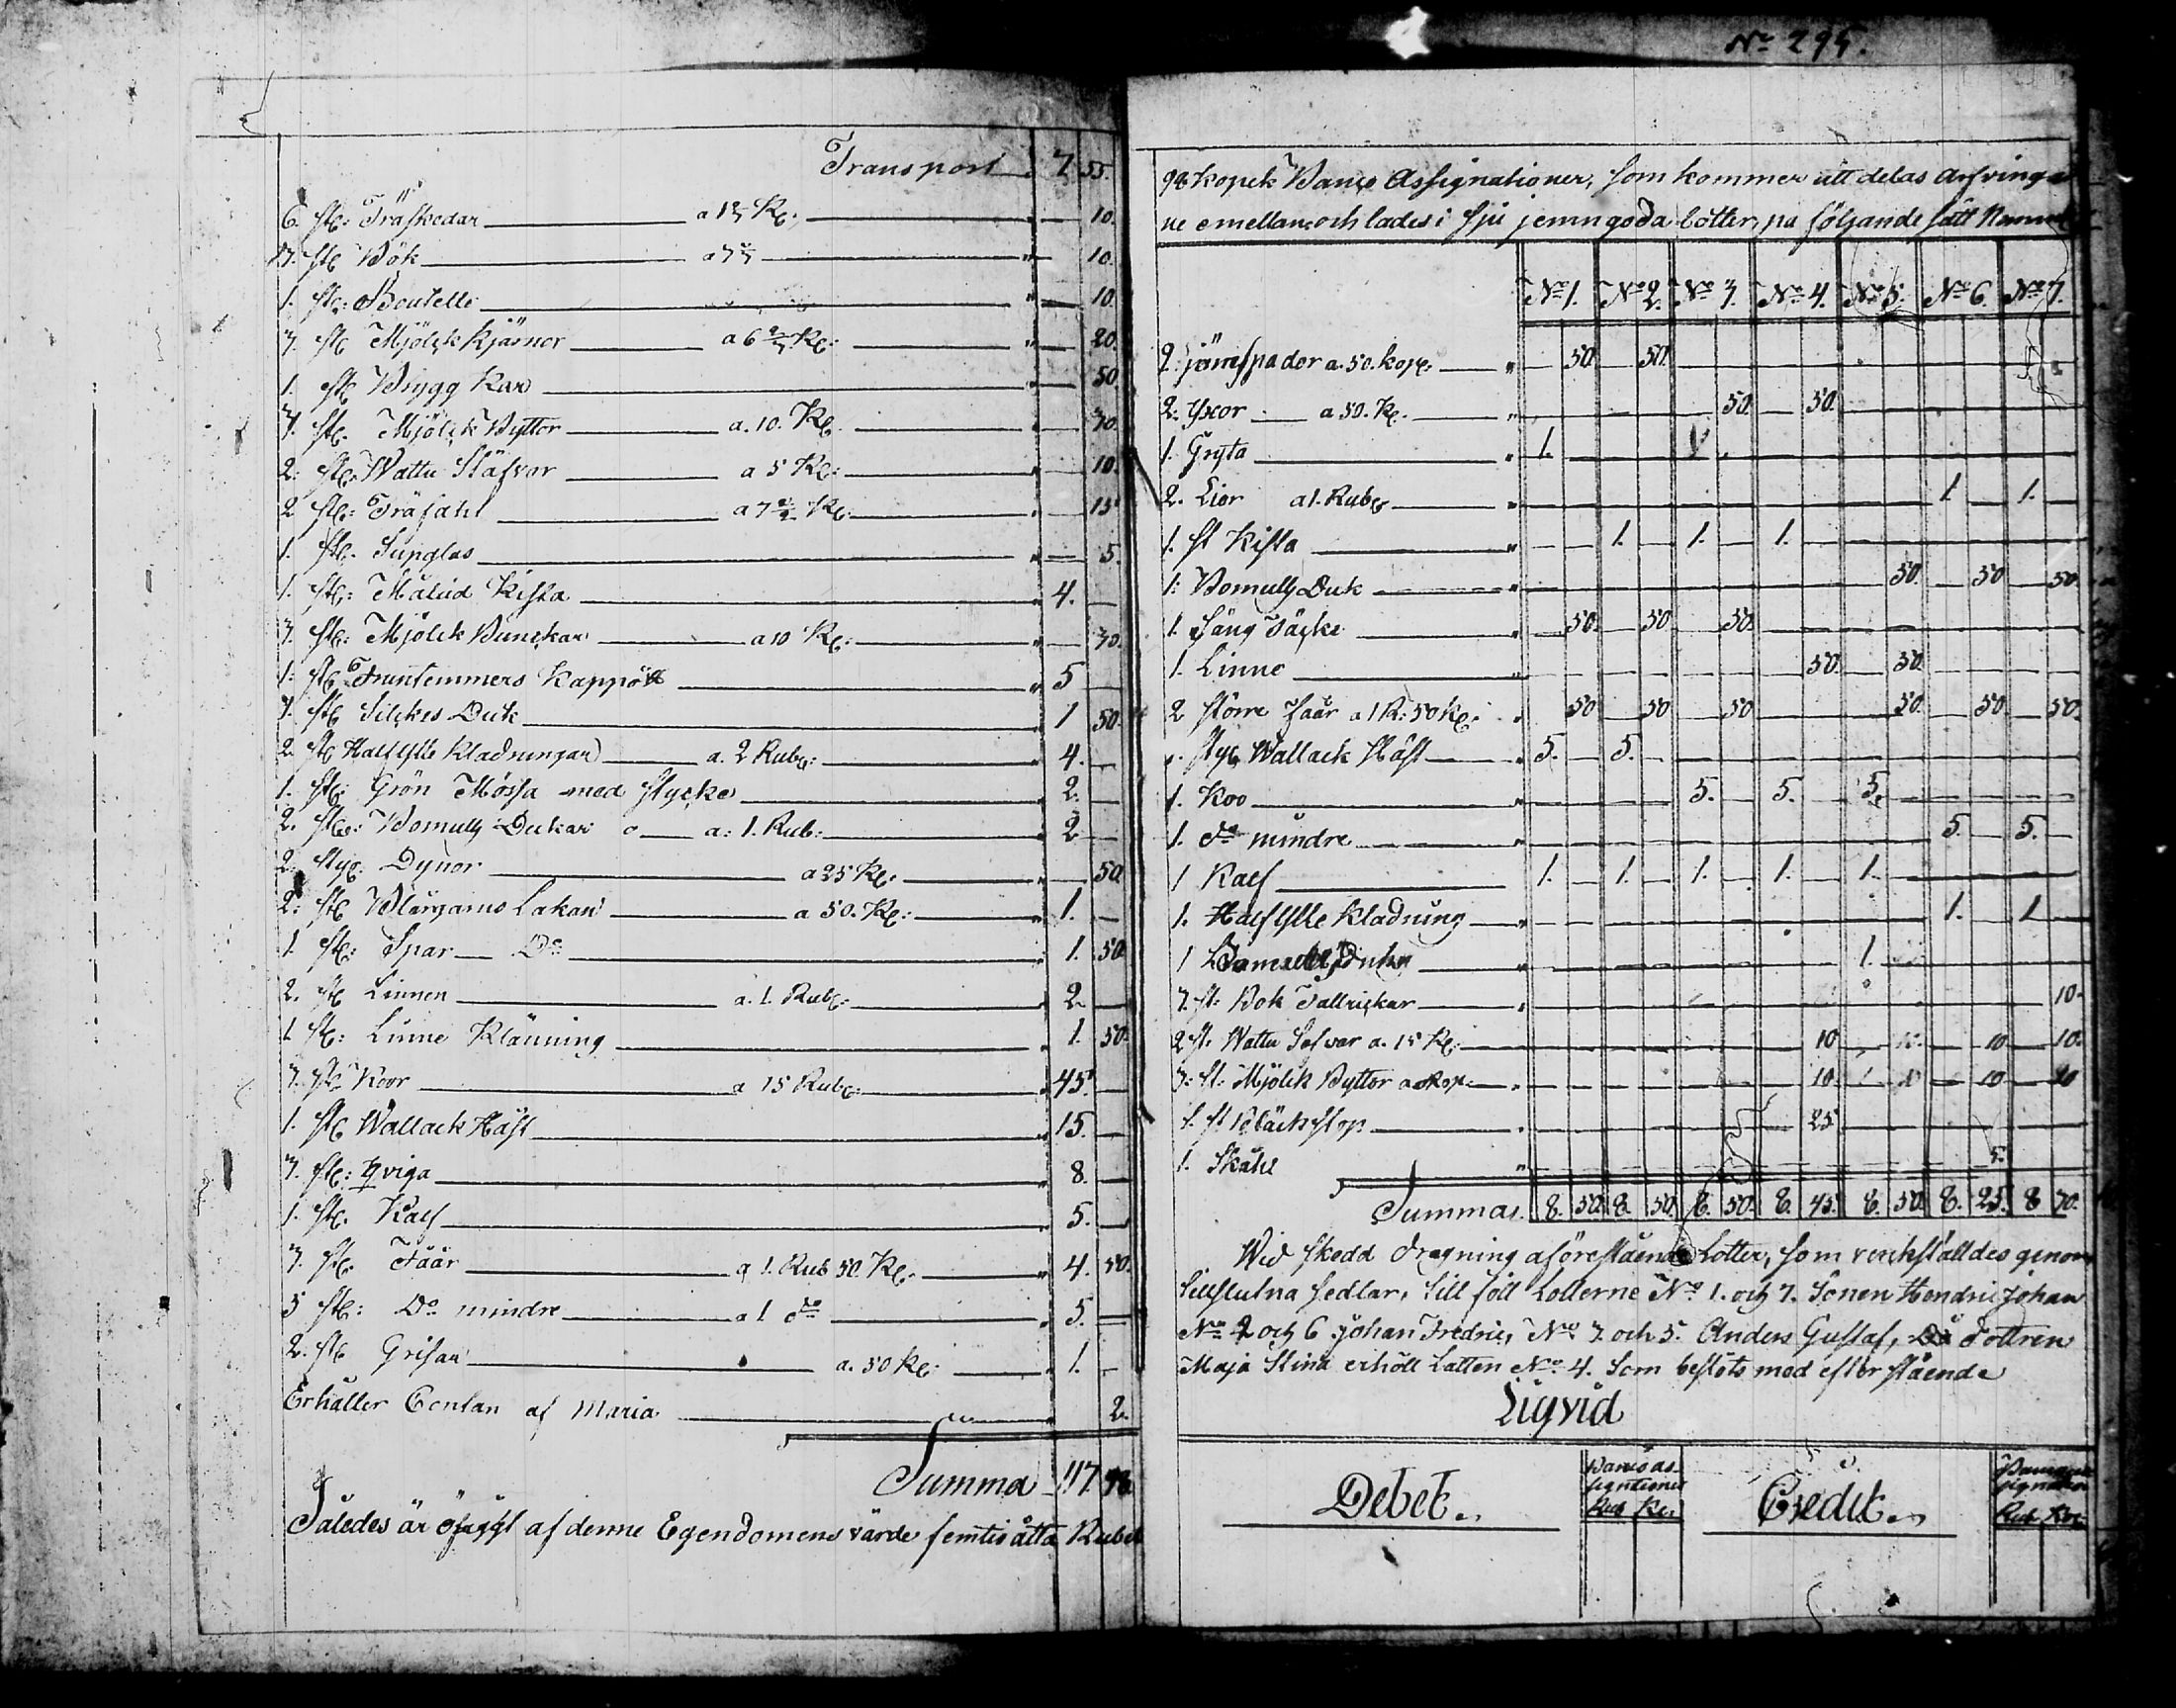 No 295.
Transport 7 55.
6. st: Träskedar a 1 Kc: 10.
st Bök 10.
1. st: Boutelle 10
st Mjölck Kjärnor a 6 Kc: 20.
1. st Brygg Kar 50.
7. st. Mjölck Byttor a. 10. Kc. 70.
2: st: Wattu Stäfvor a 5 Kc: 10.
2 st: Träfaht a 7 1/2 Kc: 15
1. st. Supglas 5.
1. st: Målad Kista 4.
7. st: Mjölck Bunckar a 10 Kc: 70.
1. st Fruntemmers Kappöt 5
st Silckes Duk 1 50
2. st Half Ylle Kladningar a. 2 Rub: 4.
1. st: Grön Mössa med stycke 2.
2. st: Bomulls Dukar a: 1. Rub: 2
2. styc: Dynor a 25 Kc: 50
2: st Blårgarns Lakan a 50. Kc: 1.
1. st: Spar Do 1. 50
2. st Linnen a. 1. Rub: 2.
1 st: Linne Klänning 1. 50.
st Koor a 15 Rub: 45.
1. st Wallack Häst 15.
st: Qviga 8.
1. st. Kalf 5.
st. Fåår a 1. Rub 50. Kc: 4. 50.
5 st: Do mindre a 1 do 5.
2. st Grisar a. 50 Kc: 1.
Erhåller Enkan af Maria 2.
Summa 117. 98
Således är af denne Egendomens värde femtio åtta Rubel
98 kopek Banco Assignationer, som kommer att delas Arfvinga
ne emellan och lades i sju jemngoda lotter, på följande sätt
No 1. No 2. No 3. No 4. No 5. No 6. No 7.
2. jernspador a. 50. kop: 50 50.
2. Yxor a 50. Kc. 50. 50.
1. Gryta 1. 1.
2. Lior a 1. Rub 1. 1.
1. st Kista 1. 1. 1.
1: Bomulls Duk 50. 50 50.
1. Säng Täcke 50. 50 50.
1. Linne 50. 50.
2 större Faår a 1 R: 50 Kc: 50 50 50 50. 50 50.
styc Wallack Häst 5. 5.
1. Koo 5. 5. 5.
1. do mindre 5. 5.
1 Kalf 1. 1. 1. 1. 1.
1. Half Ylle Kladning 1. 1
1 Bomulls Duk 1.
7. st: Bok Tallrickar 10.
2 st. Wattu Säfvar a. 15 Kc: 10 10. 10 10.
st: Mjölck Byttor 10. 10 10 10
1. st Bläckstop 25.
1. Skåhl 5.
Summa. 8. 50. 8. 50 8. 50. 8. 45. 8. 50. 8. 25. 8 70.
Wid skedd dragning af förestående Lotter, som verkställdes genom
tillslutna sedlar, till föll Lotterne No 1. och 7. Sonen Hendric Johan
No 2 och 6 Johan Fredric, No 3 och 5. Anders Gustaf, Dottren
Maja Stina erhöll Latten No 4. Som beslöts med efterstående
Liqvid
Debet. Banco as- signationer Rub Kc: Credit. Rub Kc: